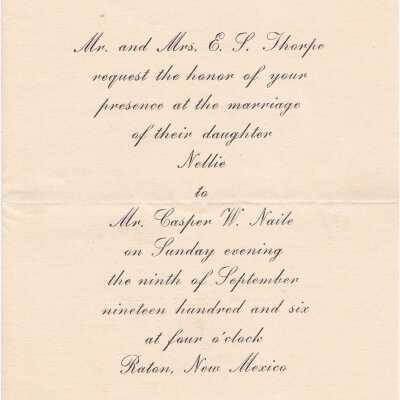 Mr. and Mrs. E. S. Thorpe
request the honor of your
presence at the marriage
of their daughter
Nellie
to
Mr. Casper W. Naile
on Sunday evening
the ninth of September
nineteen hundred and six
at four o'clock
Raton, New Mexico